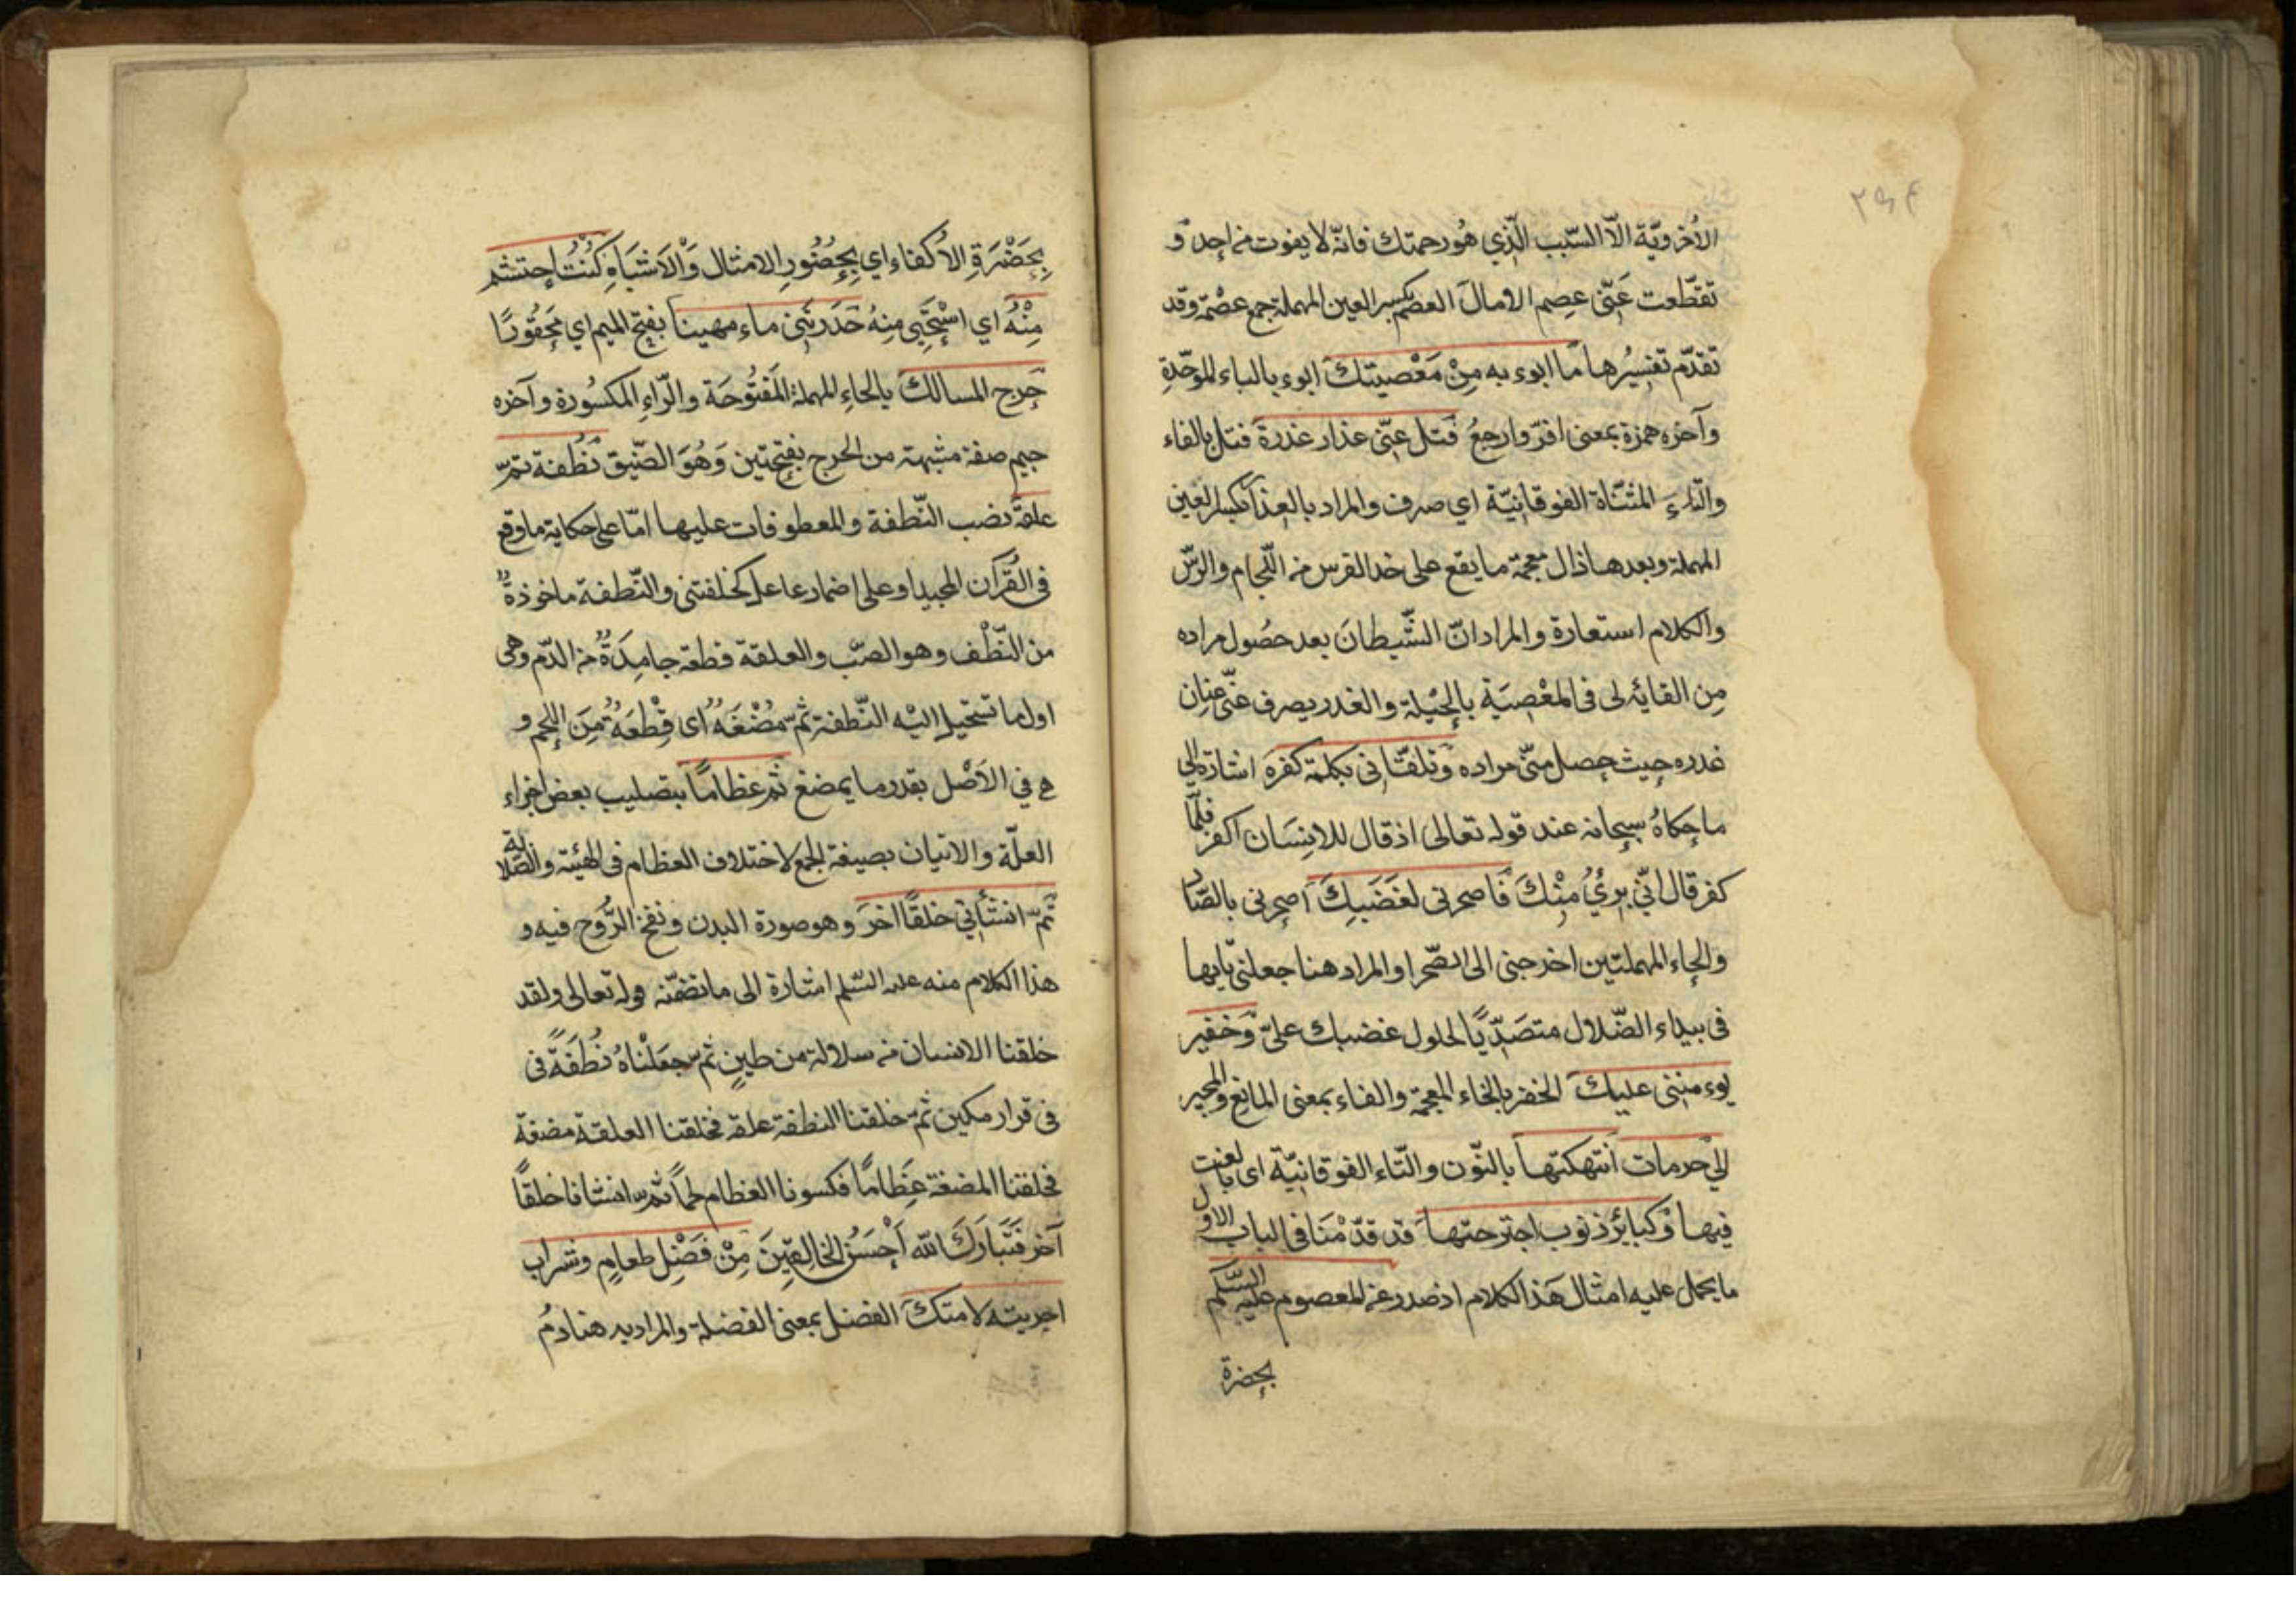 ۲۹۴
الأُخرويّة الّا السّبب الّذي هُو رحمتك فانّه لا يفوت من احدٍ و
تقطّعت عَنّى عِصم الامال العصم بكسر العين المهملة جمع عصمة وقد
تقدّم تفسيرُها ما ابوء به مِنْ مَعْصيتك ابوء بالباء الموحّدةِ
وآخره همزة بمعنى اقرّ وارجعُ فتل عنّى عذار غدره فتل بالفاء
والتاءِ المثنّاة الفوقانيّة اي صرف والمراد بالعذار بكسر العين
المهملة وبعدها ذال معجمة ما يقع على خد الفرس من اللّجام والرّسن
والكلام استعارة والمراد انّ الشّيطانَ بعد حصُول مراده
مِن القائه لى فى المعْصيَة بالحيْلة والغدر يصرف عنّى عِنان
غدره حيث حصل منّى مراده وتلقّانى بكلمة كفره اشارة الي
ما حكاهُ سبحانه عند قوله تعالى اذ قال للانِسَان اكفر فلمّا
كفر قال انّي برئُ مِنْكَ فاصحرنى لغَضَبِكَ اصحرنى بالصّاد
والحاء المهملتين اخرجنى الى الصّحرا والمراد هنا جعلنى تايها
فى بيداء الضّلال متصَدّيًا لحلول غضبك علىّ وَخفير
يوء مننى عليك الخفر بالخاء المعجمة والفاء بمعنى المانع والمجير
الي حرمات انتهكتها بالنّون والتّاء الفوقانيّة اى بالغت
فيها وكبائر ذنوب اجترحتها قد قدّمْنَا فى الباب الاول
ما يحمل عليه امثال هَذا الكلام اذ صدر عن المعصوم عليه السّلم
بحضرة
بِحَضْرَةِ الأكفاء اي بِحضُورِ الامثال وَالْاشبَاهِ كُنْتُ احتشم
مِنْهُ اي اسْتَحَيِي مِنهُ حَدرتَنِى ماء مهينا بفتح الميم اي محَقُورًا
حرج المسالك بالحاءِ المهملة المَفتُوحَة والرّاءِ المكسُورة وآخره
جيم صفة مشبهة من الحرج بفتحتين وَهُوَ الضّيق نُطْفة ثمّ
علقةً نصب النّطفة والمعطوفات عليها امّا على حكاية ما وقع
فى القُرآن المجيد او على اضمار عامل كخلقتنى والنّطفة ماخوذةٌ
من النّطْف وهو الصّب والعلقة قطعة جامِدَةٌ من الدّم وهى
اول ما تستحيل اليْه النّطفة ثمّ مُضْغَةً اى قِطْعَةً مِنَ اللحم و
هي في الاَصْل بقدر ما يمضغ ثمّ عظامًا بتصليب بعض اجزاء
العلّة والاتيان بصيغة الجمع لاختلاف العظام فى الهيئة والصّلابة
ثمّ انشأتني خلقًا اخرَ وهو صورة البدن ونفخ الرُّوح فيه و
هذا الكلام منه عليه السّلم اشارة الى ما تضمّنه قوله تعالى ولقد
خلقنا الانسان من سلالة من طينٍ ثمّ جعَلْناهُ نُطفَةً فى
فى قرار مكين ثمّ خلقنا النطفة علقة فخلقنا العلقة مضغة
فخلقنا المضغة عِظامًا فكسونا العظام لحمًا ثمّ انشاناه خلقًا
آخر فتَبَارَكَ الله اَحْسَنُ الخالِقِينَ مِنْ فَضْلِ طعامٍ وشراب
اجريته لامتك الفضل بمعنى الفضلة والمراد به هنا دمُ